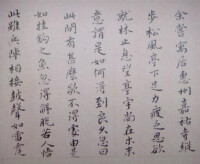 余嘗寓居惠州嘉祐寺縱
步松風亭下足力疲乏思欲
就林止息望亭宇尚在木末
意謂是如何得到良久忽曰
此間有甚麼歇不得處由是
如挂鉤之魚忽得解脫若人悟
此雖兵陣相接鼓聲如雷霆